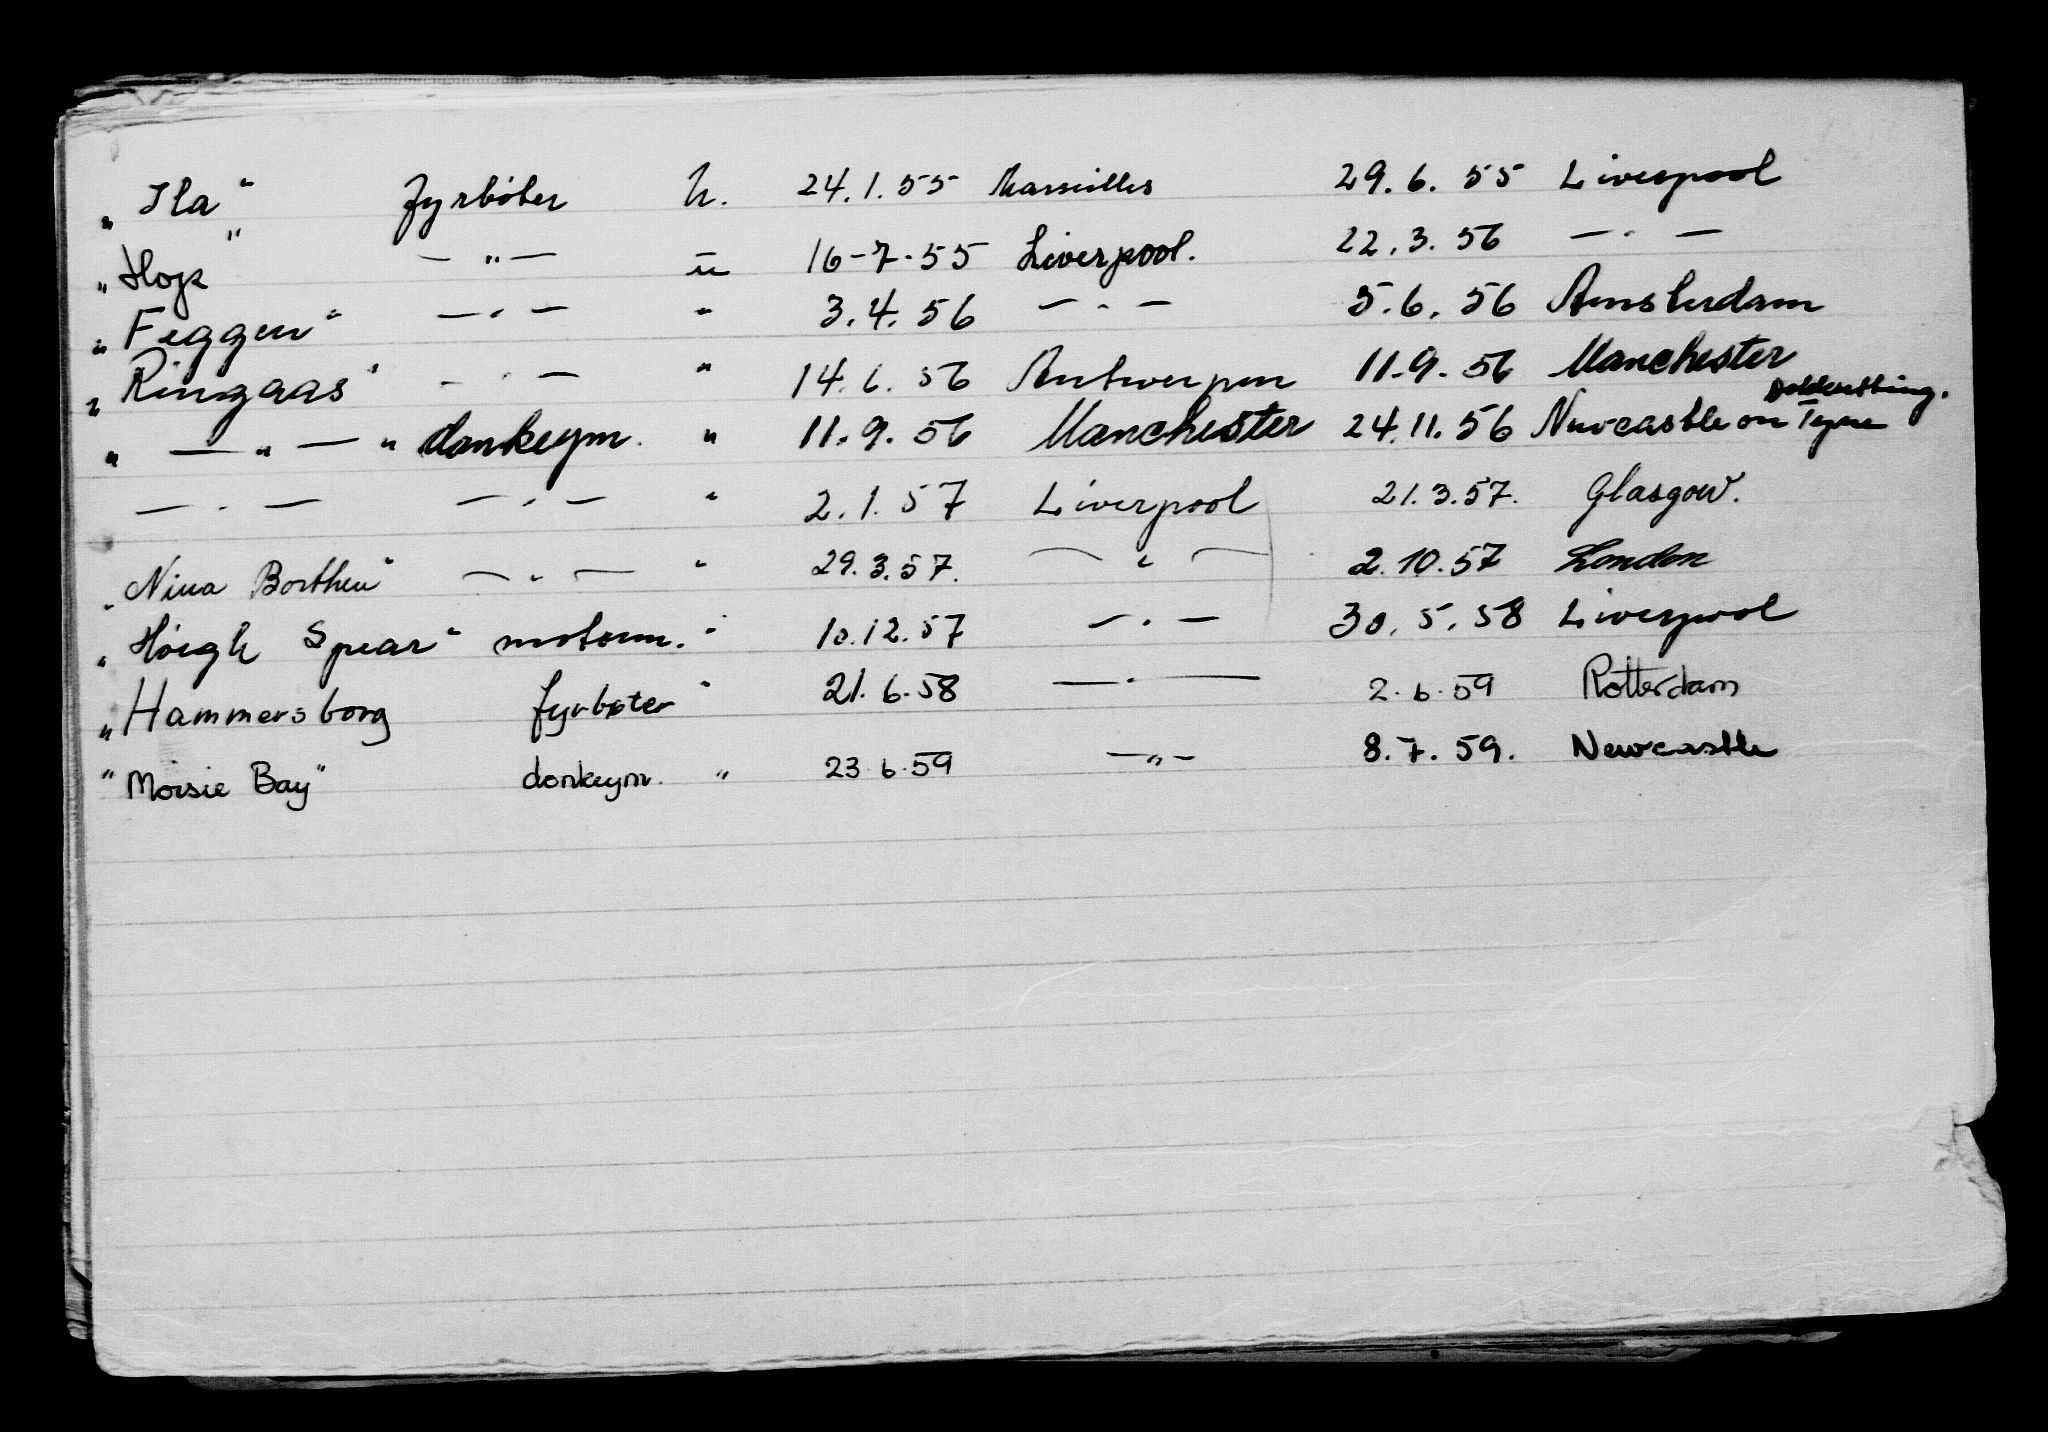 „ Ila " fyrbøter U. 24.1.55 Marseilles 29.6.55 Liverpool
„ Hop " — " — u 16-7-55 Liverpool. 22.3.56 — " —
„ Feggen " — " — " 3.4.56 — " — 5.6.56 Amsterdam
„ Ringaas " — " — " 14.6.56 Antwerpen 11.9.56 Manchester
„ — " — " donkeym. " 11.9.56 Manchester 24.11.56 Newcastle on Tyne
— " — — " — " 2.1.57 Liverpool 21.3.57. Glasgow.
„ Nina Borthen " — " — " 29.3.57. — " — 2.10.57 London
„ Höegh Spear " motorm. " 10.12.57 — " — 30.5.58 Liverpool
„ Hammersborg fyrbøter " 21.6.58 — " — 2.6.59 Rotterdam
" Moisie Bay " donkeym. " 23.6.59 — " — 8.7.59. Newcastle